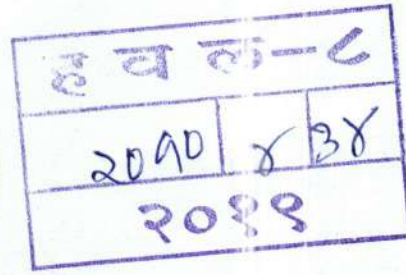 ह व ल-८
२०१० ४ ३४
२०१९